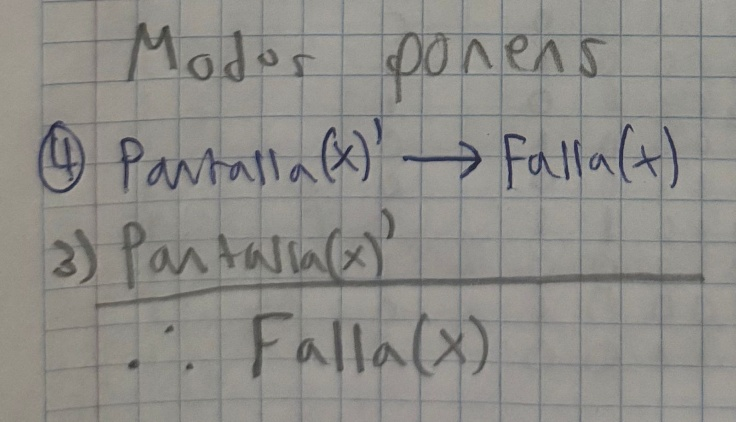 Modos ponens
④ Pantalla(x)' → Falla(x)
3) Pantalla(x)'
∴ Falla(x)